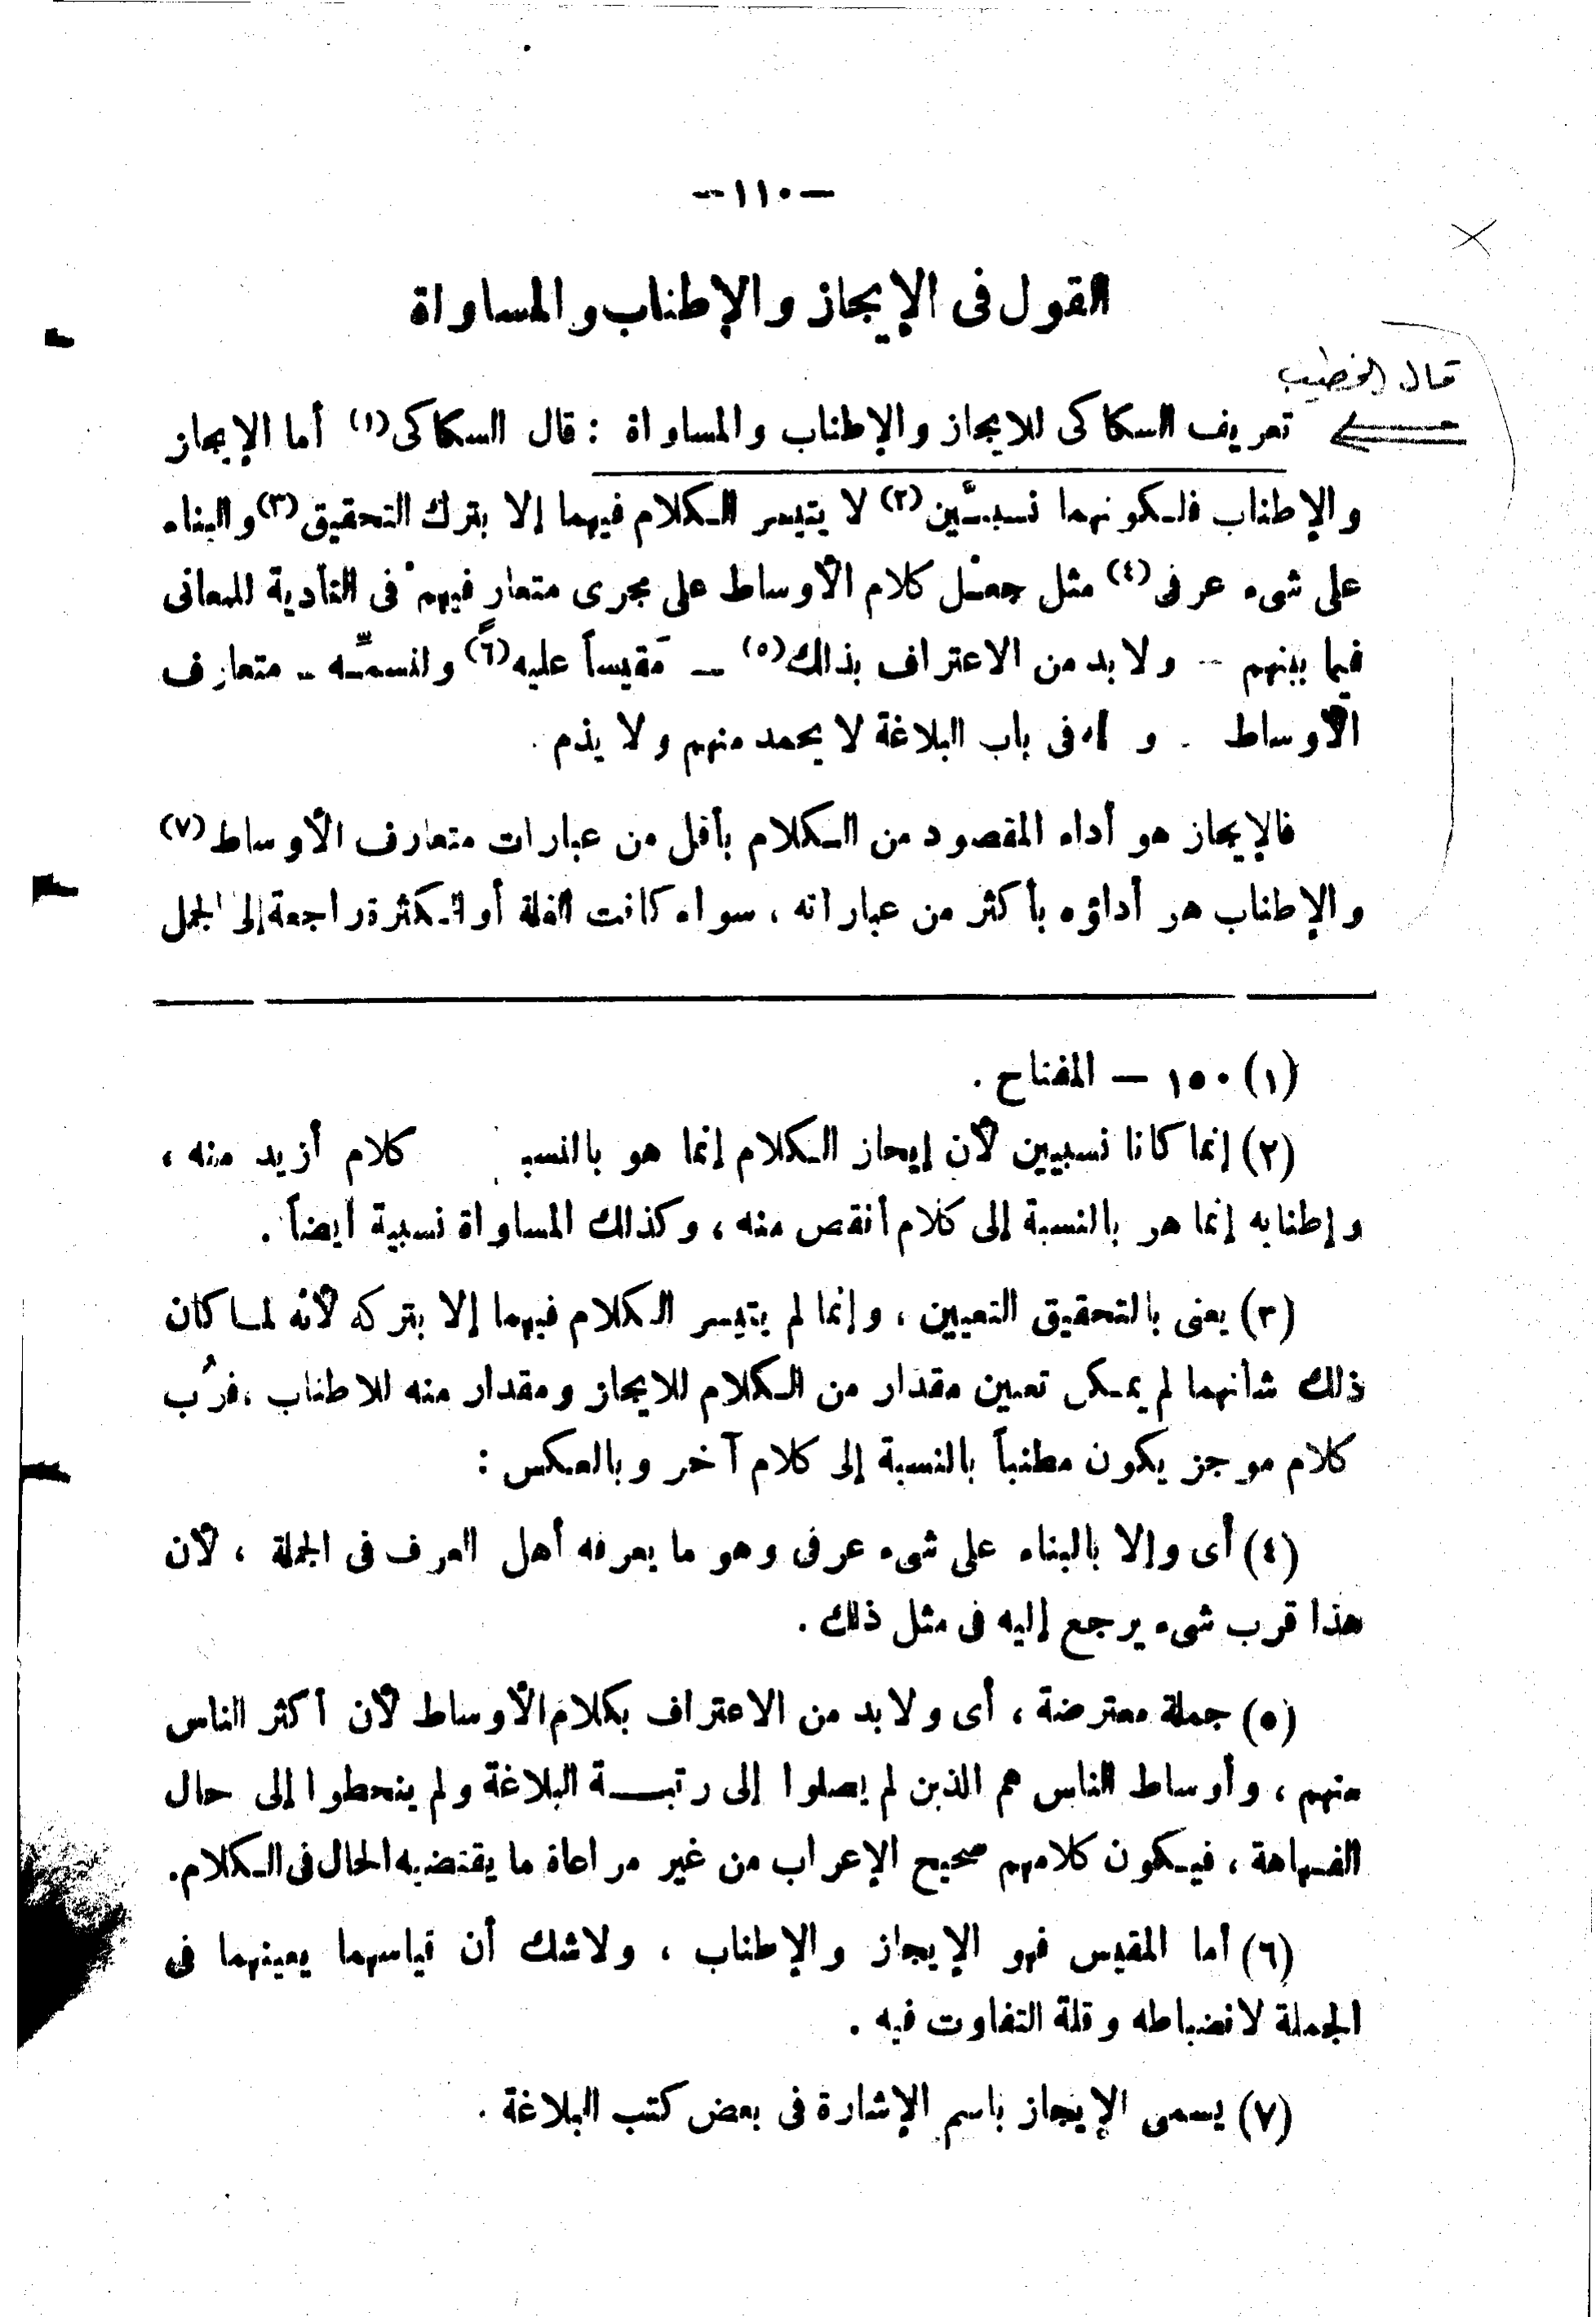 — ١١٠ —
القول فى الإيجاز والإطناب والمساواة
قال الخطيب
تعريف السكاكى للايجاز والإطناب والمساواة : قال السكاكى (١) أما الإيجاز
والإطناب فلكونهما نسبيَّين (٢) لا يتيسر الكلام فيهما إلا بترك التحقيق (٣) والبناء
على شىء عرفى (٤) مثل جعل كلام الأوساط على مجرى متعارفهم فى التأدية للمعانى
فيما بينهم – ولا بد من الاعتراف بذلك (٥) – مَقيساً عليه (٦) ولنسمِّه – متعارف
الأوساط – و فى باب البلاغة لا يحمد منهم ولا يذم .
فالإيجاز هو أداء المقصود من الكلام بأقل من عبارات متعارف الأوساط (٧)
والإطناب هو أداؤه بأكثر من عباراته ، سواء كانت القلة أو الكثرة راجعة إلى الجمل
(١) ١٥٠ — المفتاح .
(٢) إنما كانا نسبيين لأن إيجاز الكلام إنما هو كلام أزيد منه ،
وإطنابه إنما هو بالنسبة إلى كلام أنقص منه ، وكذلك المساواة نسبية أيضاً .
(٣) يعنى بالتحقيق التعيين ، وإنما لم يتيسر الكلام فيهما إلا بتركه لأنه لما كان
ذلك شأنهما لم يمكن تعيين مقدار من الكلام للايجاز ومقدار منه للاطناب ، فرُب
كلام موجز يكون مطنباً بالنسبة إلى كلام آخر وبالعكس :
(٤) أى وإلا بالبناء على شىء عرفى وهو ما يعرفه أهل العرف فى الجملة ، لأن
هذا قرب شىء يرجع إليه فى مثل ذلك .
(٥) جملة معترضة ، أى ولا بد من الاعتراف بكلام الأوساط لأن أكثر الناس
منهم ، وأوساط الناس هم الذين لم يصلوا إلى رتبـــة البلاغة ولم ينحطوا إلى حال
الفهاهة ، فيكون كلامهم صحيح الإعراب من غير مراعاة ما يقتضيه الحال فى الكلام.
(٦) أما المقيس فهو الإيجاز والإطناب ، ولا شك أن قياسهما يعينهما فى
الجملة لانضباطه وقلة التفاوت فيه .
(٧) يسمى الإيجاز باسم الإشارة فى بعض كتب البلاغة .